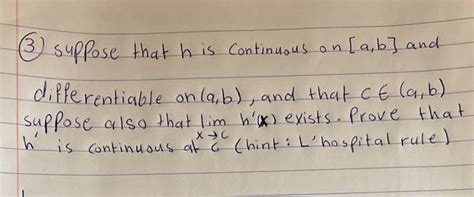 ③ suppose that h is continuous on [a,b] and
differentiable on (a,b), and that c ∈ (a,b)
suppose also that lim h'(x) exists. Prove that
x→c
h' is continuous at c (hint: L'hospital rule)